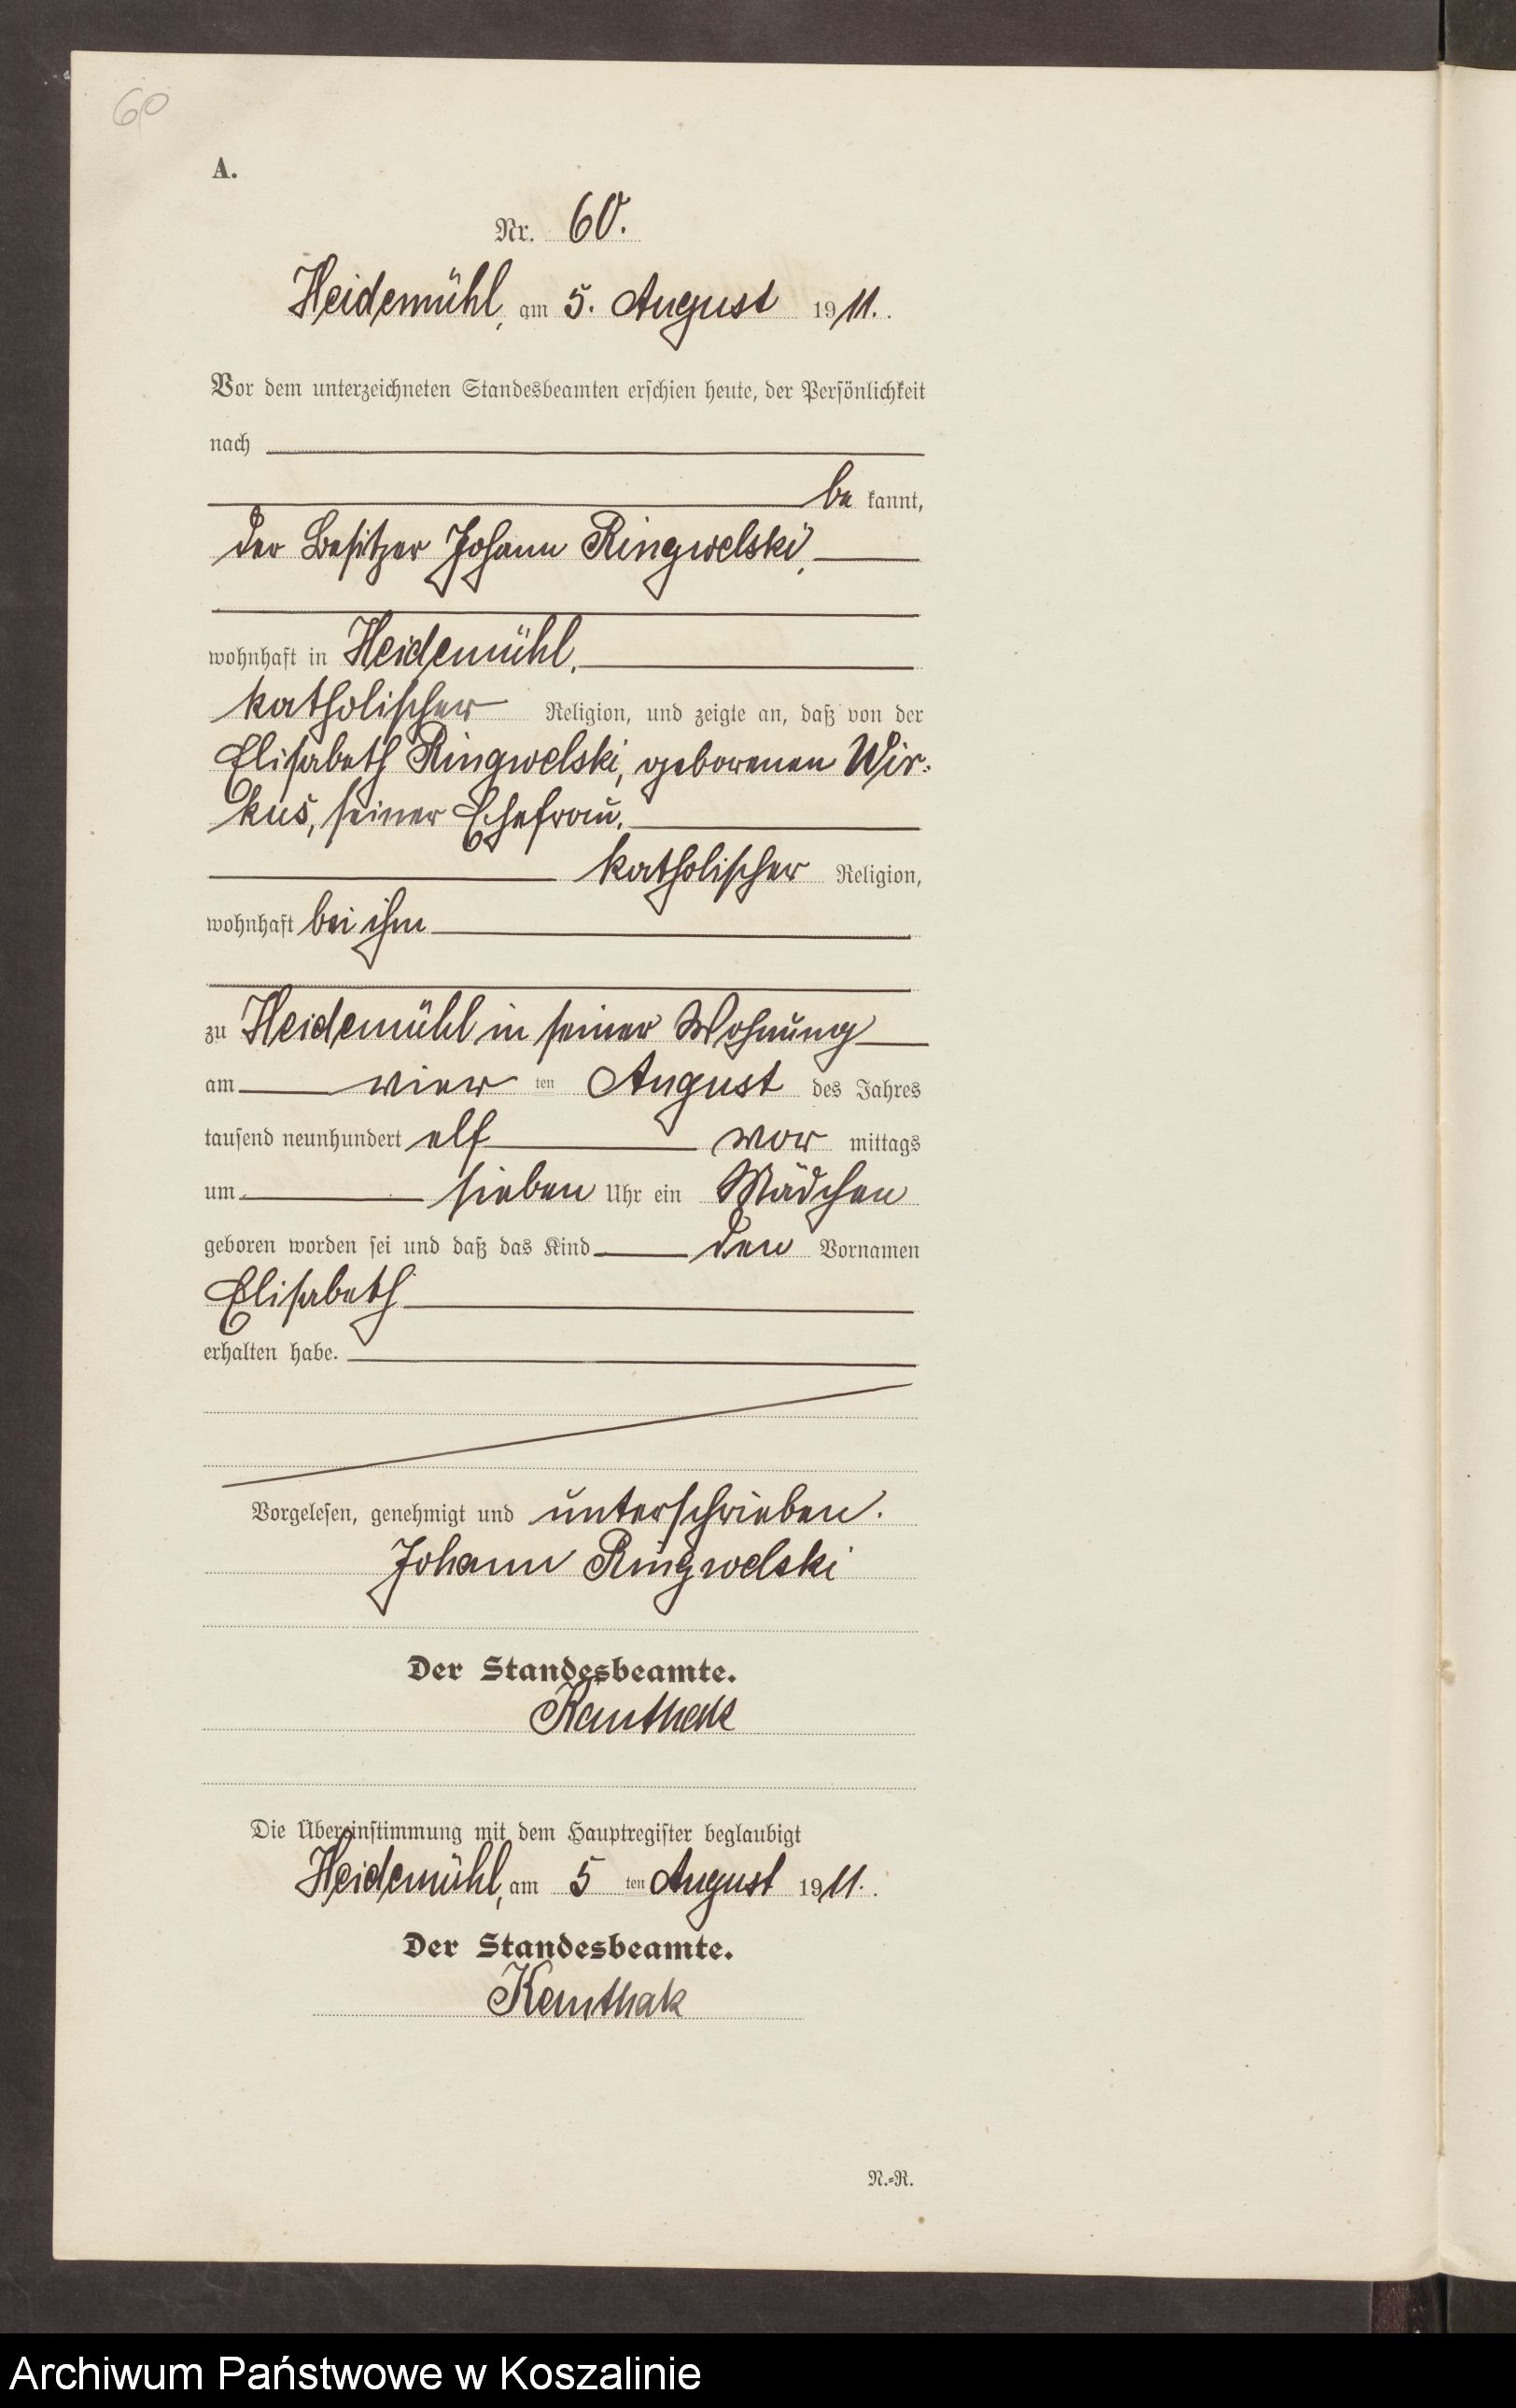 60
A.
Nr. 60.
Heidemühl, am 5. August 1911.
Vor dem unterzeichneten Standesbeamten erschien heute, der Persönlichkeit
nach
be kannt,
der Besitzer Johann Ringwelski,
wohnhaft in Heidemühl,
katholischer Religion, und zeigte an, daß von der
Elisabeth Ringwelski, geborenen Wir-
kus, seiner Ehefrau,
katholischer Religion,
wohnhaft bei ihm
zu Heidemühl in seiner Wohnung
am vier ten August des Jahres
tausend neunhundert elf vor mittags
um sieben Uhr ein Mädchen
geboren worden sei und daß das Kind den Vornamen
Elisabeth
erhalten habe.
Vorgelesen, genehmigt und unterschrieben.
Johann Ringwelski
Der Standesbeamte.
Die Übereinstimmung mit dem Hauptregister beglaubigt
Heidemühl, am 5 ten August 1911.
Der Standesbeamte.
N.-R.
Archiwum Państwowe w Koszalinie